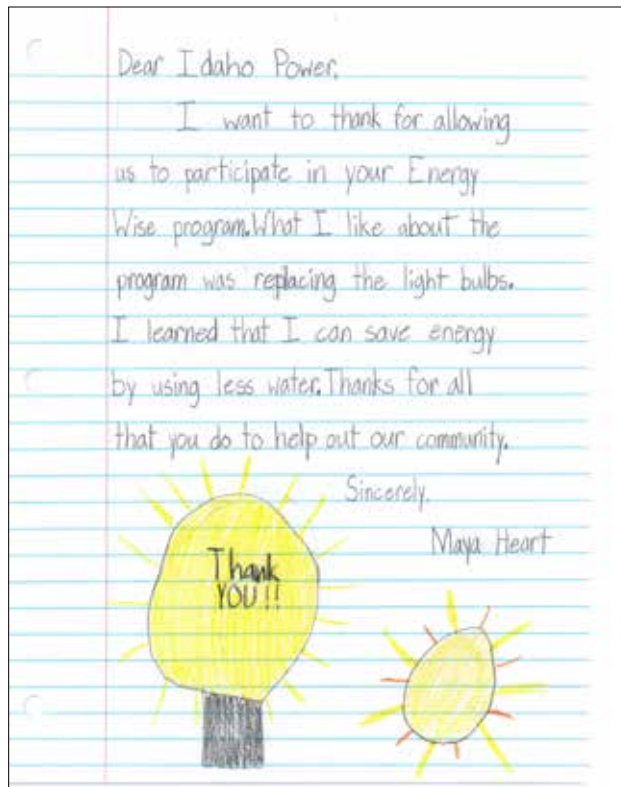 Dear Idaho Power,
I want to thank for allowing
us to participate in your Energy
Wise program.What I like about the
program was replacing the light bulbs.
I learned that I can save energy
by using less water.Thanks for all
that you do to help out our community.
Sincerely,
Maya Heart
Thank
YOU!!